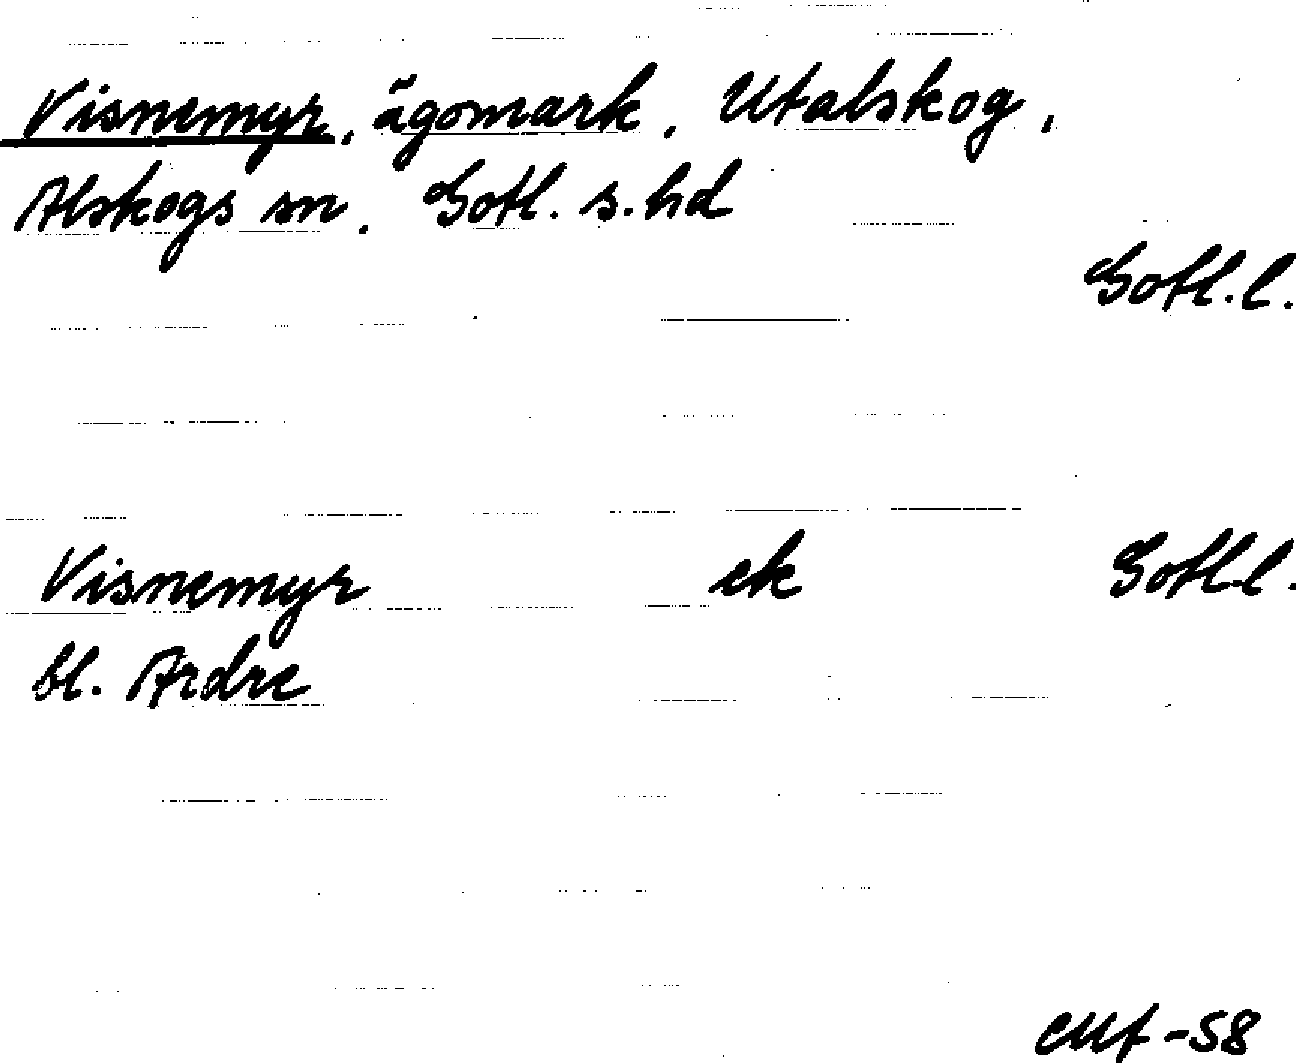 Visnemyr, ägomark, Utalskog,
Alskogs sn. Gotl. s. hd
Gotl. l.
Visnemyr ek Gotl. l.
bl. Ardre
CMf -58